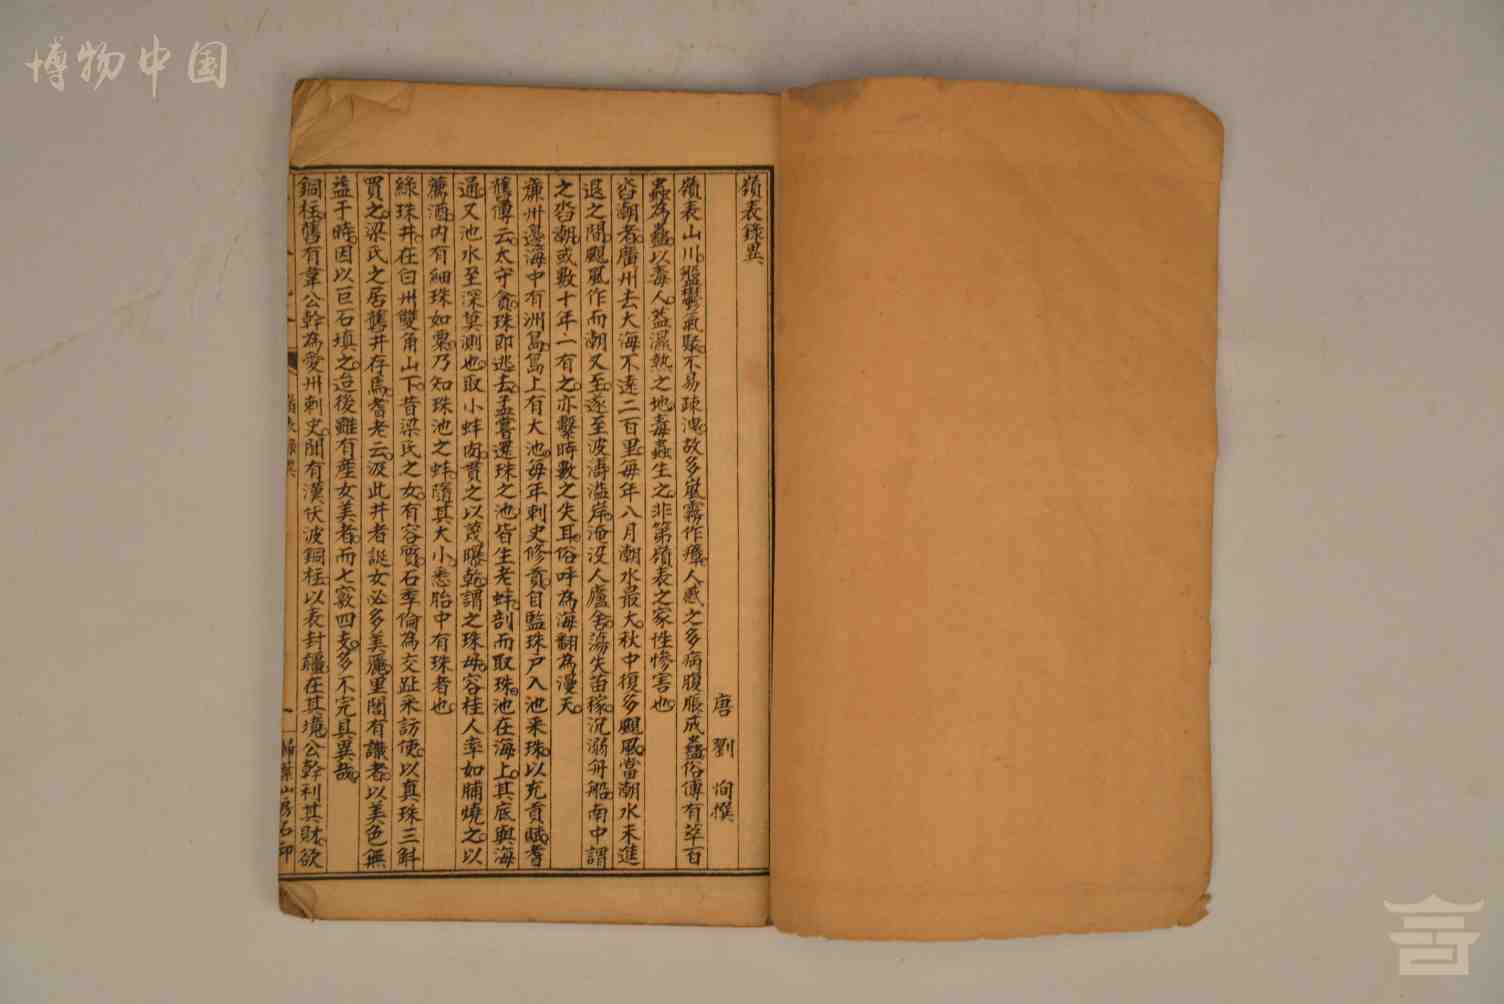 博物中国
嶺表錄異
唐 劉 恂撰
嶺表山川。盤鬱氣聚。不易疎洩。故多嵐霧作瘴。人感之多病。腹脹成蠱。俗傳有萃百
蟲為蠱。以毒人。蓋濕熱之地。毒蟲生之。非第嶺表之家。性慘害也。
沓潮者。廣州去大海不遠二百里。每年八月。潮水最大。秋中復多颶風。當潮水未進
退之間。颶風作而潮又至。遂至波濤溢岸。淹沒人廬舍。蕩失苗稼。沉溺舟船。南中謂
之沓潮。或數十年一有之。亦繫時數之失耳。俗呼為海翻為漫天。
廉州邊海中有洲島。島上有大池。每年刺史修貢。自監珠户入池采珠。以充貢賦。耆
舊傳云。太守貪珠即逃去。孟嘗還珠之池。皆生老蚌。剖而取珠。池在海上。其底與海
通。又池水至深莫測也。取小蚌肉。貫之以篾曝乾。謂之珠母。容桂人率如脯燒之以
薦酒。內有細珠如粟。乃知珠池之蚌。隨其大小。悉胎中有珠者也。
綠珠井。在白州雙角山下。昔梁氏之女。有容質。石季倫為交趾采訪使。以真珠三斛
買之。梁氏之居。舊井存焉。耆老云。汲此井者。誕女必多美麗。里閭有識者。以美色無
益于時。因以巨石填之。迨後雖有產女美者。而七竅四支。多不完具。異哉。
銅柱。舊有韋公幹為愛州刺史。聞有漢伏波銅柱。以表封疆。在其境。公幹利其財。欲
嶺表錄異
掃葉山房石印